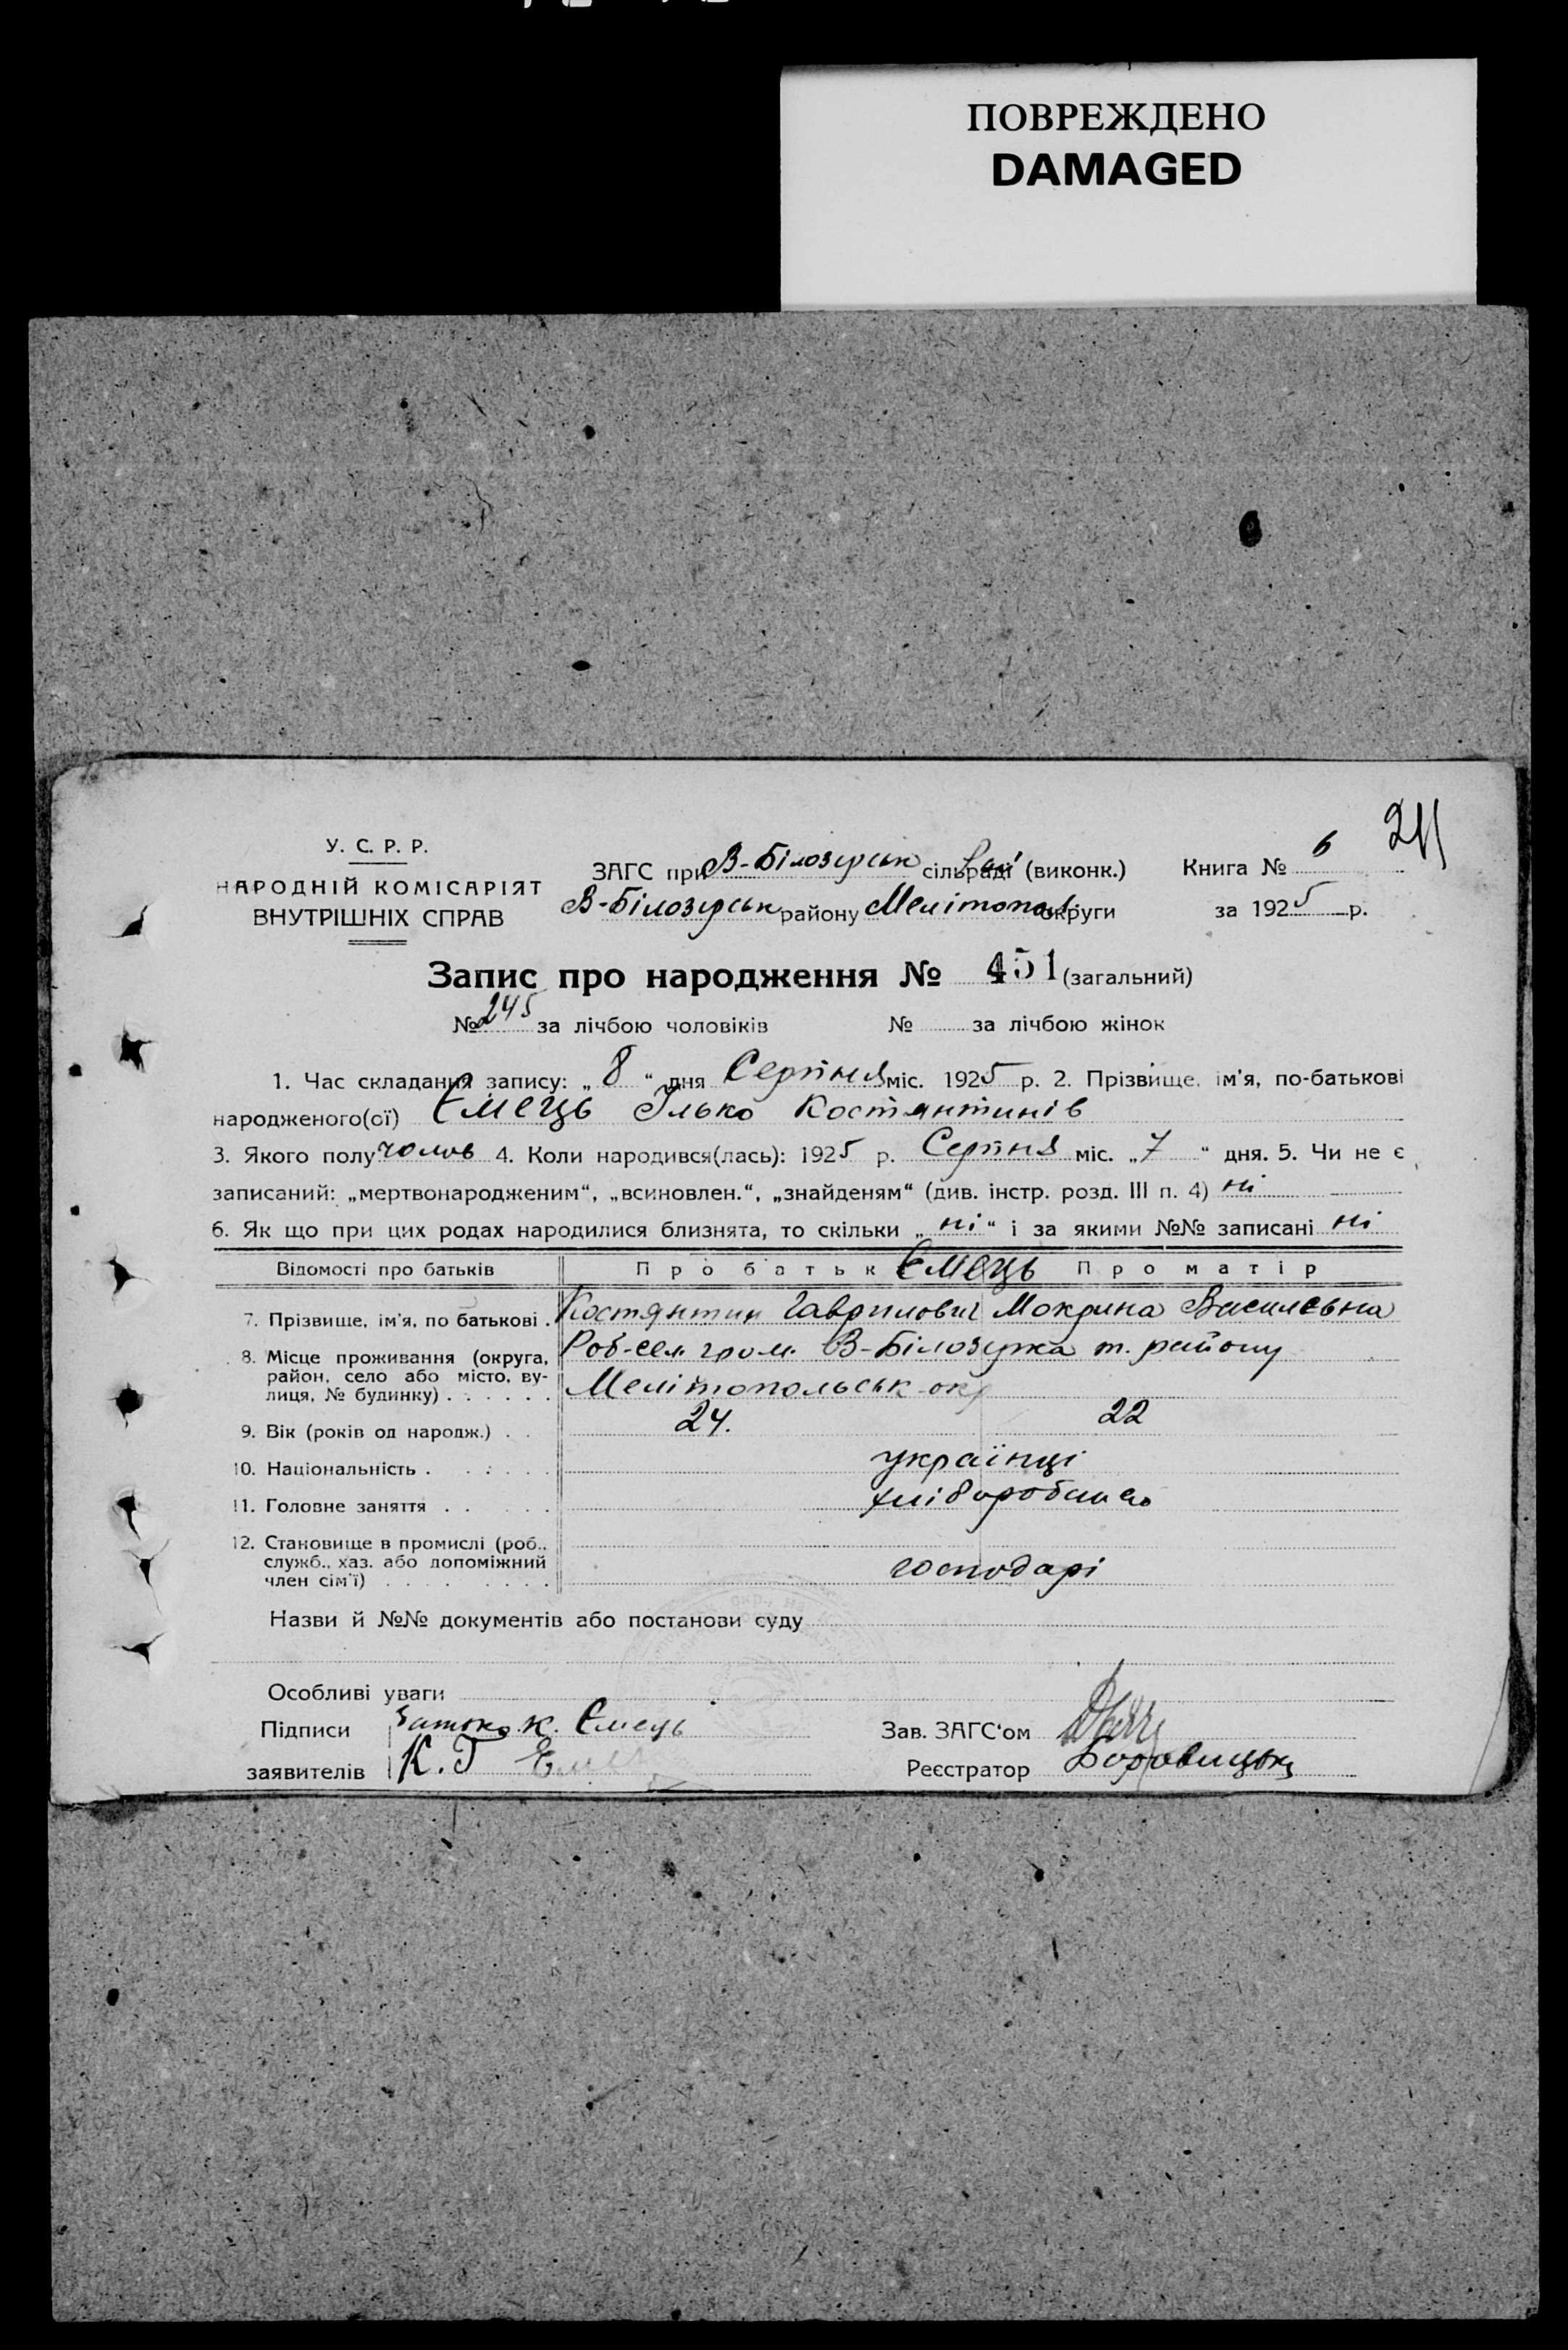 ПОВРЕЖДЕНО
DAMAGED
211
У. С. Р. Р.
НАРОДНІЙ КОМІСАРІЯТ
ВНУТРІШНІХ СПРАВ
ЗАГС при В-Білозерськ сільраді (виконк.)
В-Білозерськ району Мелітопол. округи
Книга № 6
за 1925 р.
Запис про народження № 451 (загальний)
№ 245 за лічбою чоловіків № за лічбою жінок
1. Час складання запису: „ 8 “ дня Серпня міс. 1925 р. 2. Прізвище, ім'я, по-батькові
народженого(ої) Ємець Ілько Костянтинів
3. Якого полу чолов 4. Коли народився(лась): 1925 р. Серпня міс. „ 7 “ дня. 5. Чи не є
записаний: „мертвонародженим“, „всиновлен.“, „знайденям“ (див. інстр. розд. III п. 4) ні
6. Як що при цих родах народилися близнята, то скільки „ ні “ і за якими №№ записані ні
Відомості про батьків Про батьк Ємець Про матір
7. Прізвище, ім'я, по батькові . Костянтин Гаврилович Мокрина Василевна
8. Місце проживання (округа, район, село або місто, вулиця, № будинку) . . . . . Роб-сел. гром. В-Білозерка т. району
Мелітопольськ окр
9. Вік (років од народж.) . . 24. 22
10. Національність . . . . . українці
11. Головне заняття . . . . хлібороби
12. Становище в промислі (роб.,
служб., хаз. або допоміжний
член сім'ї) . . . . . . . . господарі
Назви й №№ документів або постанови суду
Особливі уваги
Підписи К. Ємець
заявителів К. Г Емец
Зав. ЗАГС'ом
Реєстратор